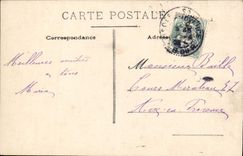 CARTE POSTALE
Correspondance
Adresse
Meilleures amitiés
à tous
Maria
Monsieur Bailly
Cours Mirabeau 27
Aix en Provence